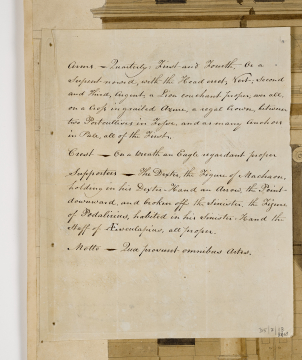 Arms – Quarterly: First and Fourth – Or a
Serpent nowed, with the Head erect, Vert, Second
and Third, Argent, a Lion couchant proper, over all,
on a Cross ingrailed Azure, a regal Crown, between
two Portcullises in Fesse, and as many Anchors
in Pale, all of the First.
Crest – On a Wreath an Eagle regardant proper
Supporters – The Dexter, the Figure of Machaon,
holding in his Dexter Hand an Arrow, the Point
downward, and broken off the Sinister, the Figure
of Podalirius, habited in his Sinister Hand the
Staff of Æsculapius, all proper.
Motto – Quæ prosunt omnibus Artes.